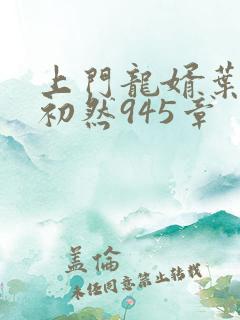 上門龍婿葉
初然945章
盖倫
未经同意禁止转载